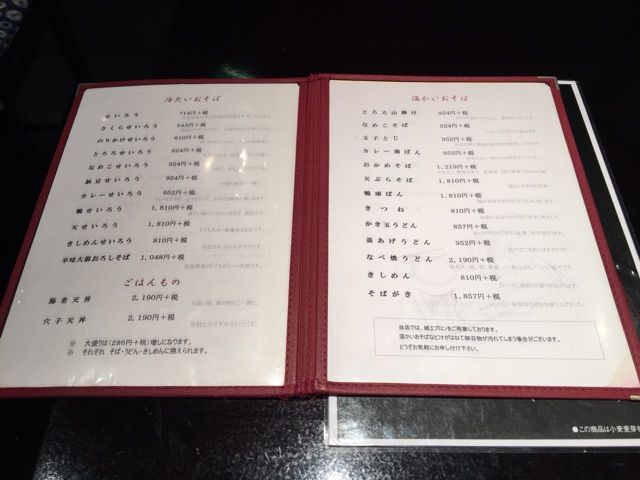 冷たいおそば
せいろう 714円+税
さくらせいろう 843円+税
のりかけせいろう 810円+税
とろろせいろう 924円+税
なめこせいろう 924円+税
納豆せいろう 924円+税
カレーせいろう 952円+税
鴨せいろう 1,810円+税
天せいろう 1,810円+税
きしめんせいろう 810円+税
辛味大根おろしそば 1,048円+税
ごはんもの
海老天丼 2,190円+税
穴子天丼 2,190円+税
※ 大盛りは(286円+税)増しになります。
※ それぞれ そば・うどん・きしめんに換えられます。
温かいおそば
とろろ山掛け 924円+税
なめこそば 924円+税
玉子とじ 924円+税
カレー南ばん 952円+税
おかめそば 1,219円+税
天ぷらそば 1,810円+税
鴨南ばん 1,810円+税
きつね 810円+税
かき玉うどん 857円+税
釜あげうどん 952円+税
なべ焼うどん 2,190円+税
きしめん 810円+税
そばがき 1,857円+税
当店では、紙エプロンをご用意しております。
温かいおそばなど汁がはねて御召物が汚れてしまう場合がございます。
どうぞお気軽にお申し付け下さい。
●この商品は小麦麦芽